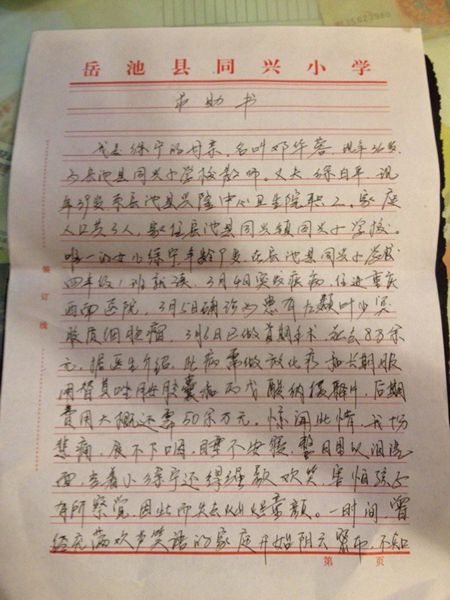 岳池县同兴小学
求助书
我是徐宁的母亲，名叫邓华蓉，现年36岁，
岳池县同兴小学校教师，丈夫徐白平，现
年39岁系岳池县兴隆中心卫生院职工，家庭
人口共3人，居住岳池县同兴镇同兴小学校。
唯一的女儿徐宁年龄9岁，在岳池县同兴小学校
四年级1班就读，3月4日突发疾病，住进重庆
西南医院，3月5日确诊为患有左颞叶少突
胶质细胞瘤，3月6日已做首期手术，花去8万余
元。据医生介绍，此病需做放化疗和长期服
用替莫唑胺胶囊和丙戊酸钠缓释片，后期
费用大概还需50余万元。惊闻此情，我
悲痛，食不下咽，睡不安寝，整日以泪洗
面，当着小徐宁还得强颜欢笑，害怕孩子
有所察觉，因此而失去童颜。一时间，曾
经充满欢声笑语的家庭开始阴云密布，不知
第 页
装订线